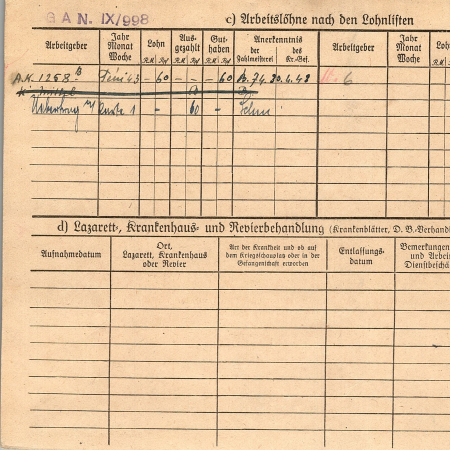 G A N. IX/998
c) Arbeitslöhne nach den Lohnlisten
Arbeitgeber Jahr Monat Woche Lohn R.M. Rpf Ausgezahlt R.M. Rpf Guthaben R.M. Rpf Anerkenntnis der Zahlmeisterei des Kr.-Gef. Arbeitgeber Jahr Monat Woche
A.K. 1258 B Juni 43 - 60 - - - 60 30.6.43 6
Übertrag Karte 1 - 60
d) Lazarett-, Krankenhaus- und Revierbehandlung (Krankenblätter, D. B.-Verhandl
Aufnahmedatum Ort, Lazarett, Krankenhaus oder Revier Art der Krankheit und ob auf dem Kriegsschauplatz oder in der Gefangenschaft erworben Entlassungsdatum Bemerkungen und Arbei Dienstbeschä